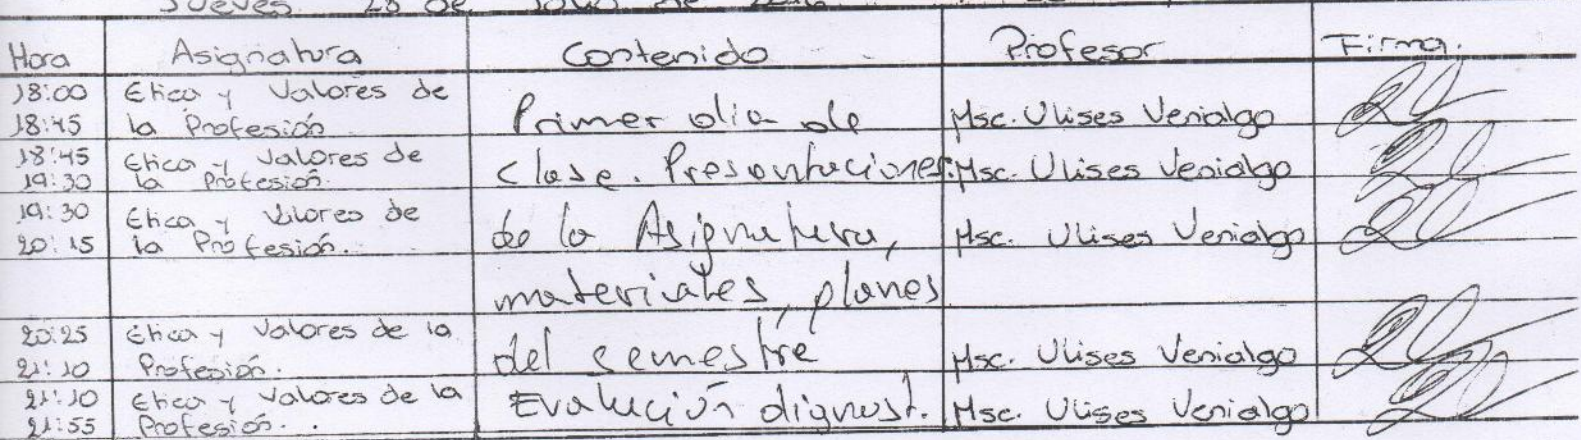 Jueves 28 de Julio de 2016
Hora Asignatura Contenido Profesor Firma.
18:00 Etica y Valores de
18:45 la Profesión Primer dia de Msc. Ulises Venialgo
18:45 Etica y Valores de
19:30 la Profesión. clase. Presentaciones. Msc. Ulises Venialgo
19:30 Etica y Valores de
20:15 la Profesión. de la Asignatura, Msc. Ulises Venialgo
materiales, planes
20:25 Etica y Valores de la
21:10 Profesión. del semestre Msc. Ulises Venialgo
21:10 Etica y Valores de la
21:55 Profesión. Evalución dignost. Msc. Ulises Venialgo